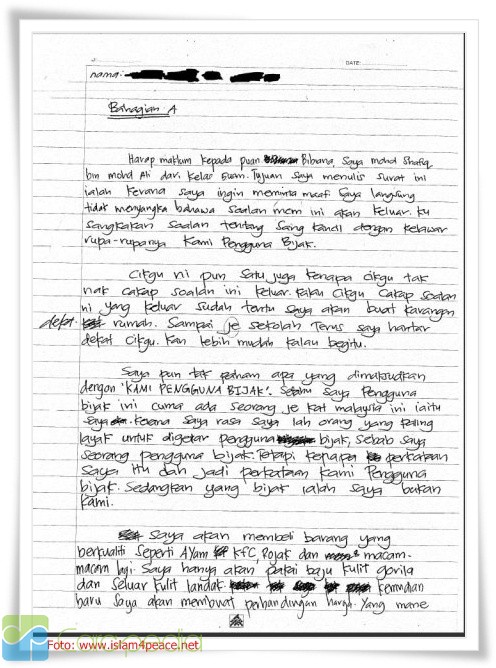 DATE:
nama:
Bahagian A
Harap maklum kepada puan Bibana, Saya mohd Shafiq
bin mohd Ali dari kelas 5uam. Tujuan saya menulis surat ini
ialah kerana saya ingin meminta maaf. Saya langsung
tidak menyangka bahawa soalan mcm ini akan keluar. ku
sangkakan soalan tentang sang kancil dengan kelawar
rupa-rupanya kami Pengguna Bijak.
Cikgu ni pun satu juga kenapa cikgu tak
nak cakap soalan ini keluar. kalau cikgu cakap soalan
ni yang keluar sudah tentu saya akan buat karangan
dekat rumah. Sampai je sekolah Terus saya hantar
dekat cikgu. kan lebih mudah kalau begitu.
Saya pun tak paham apa yang dimaksudkan
dengan 'KAMI PENGGUNA BIJAK'. Pengguna
bijak ini cuma ada seorang je kat malaysia ini iaitu
saya. kerana saya rasa saya lah orang yang paling
layak untuk digelar pengguna bijak, sebab saya
seorang pengguna bijak. Tetapi kenapa perkataan
saya itu dah jadi perkataan kami Pengguna
bijak. Sedangkan yang bijak ialah saya bukan
kami.
Saya akan membeli barang yang
berkualiti seperti Ayam KFC, Rojak dan macam-
macam lagi. Saya hanya akan pakai baju kulit gorila
dan seluar kulit landak kemudian
baru saya akan membuat perbandingan harga. Yang mane
Foto: www.islam4peace.net